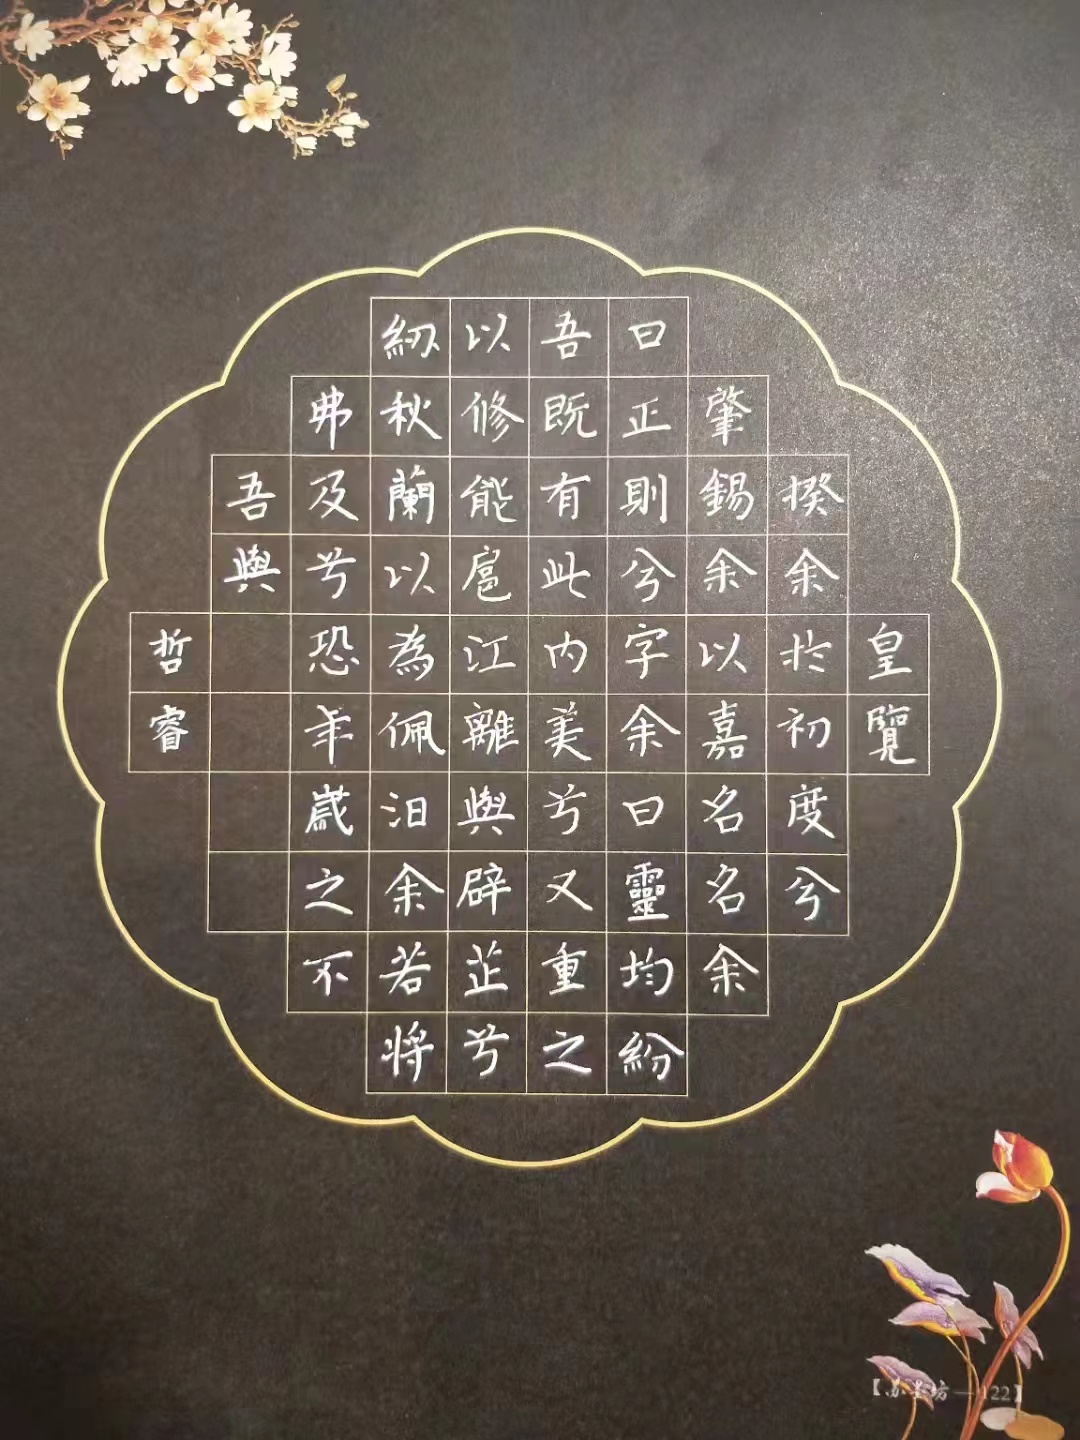 皇覽
揆余於初度兮
肇錫余以嘉名名余
曰正則兮字余曰靈均紛
吾既有此内美兮又重之
以修能扈江離與辟芷兮
紉秋蘭以為佩汩余若将
弗及兮恐年歲之不
吾與
哲睿
122】